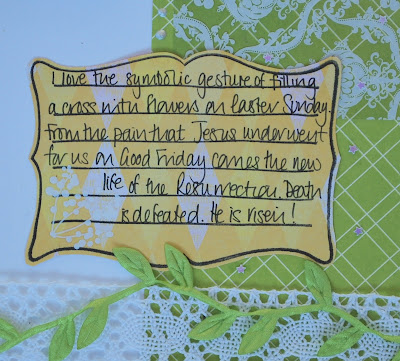 I love the symbolic gesture of filling
a cross with flowers on Easter Sunday.
From the pain that Jesus underwent
for us on Good Friday comes the new
life of the Resurrection. Death
is defeated. He is risen!